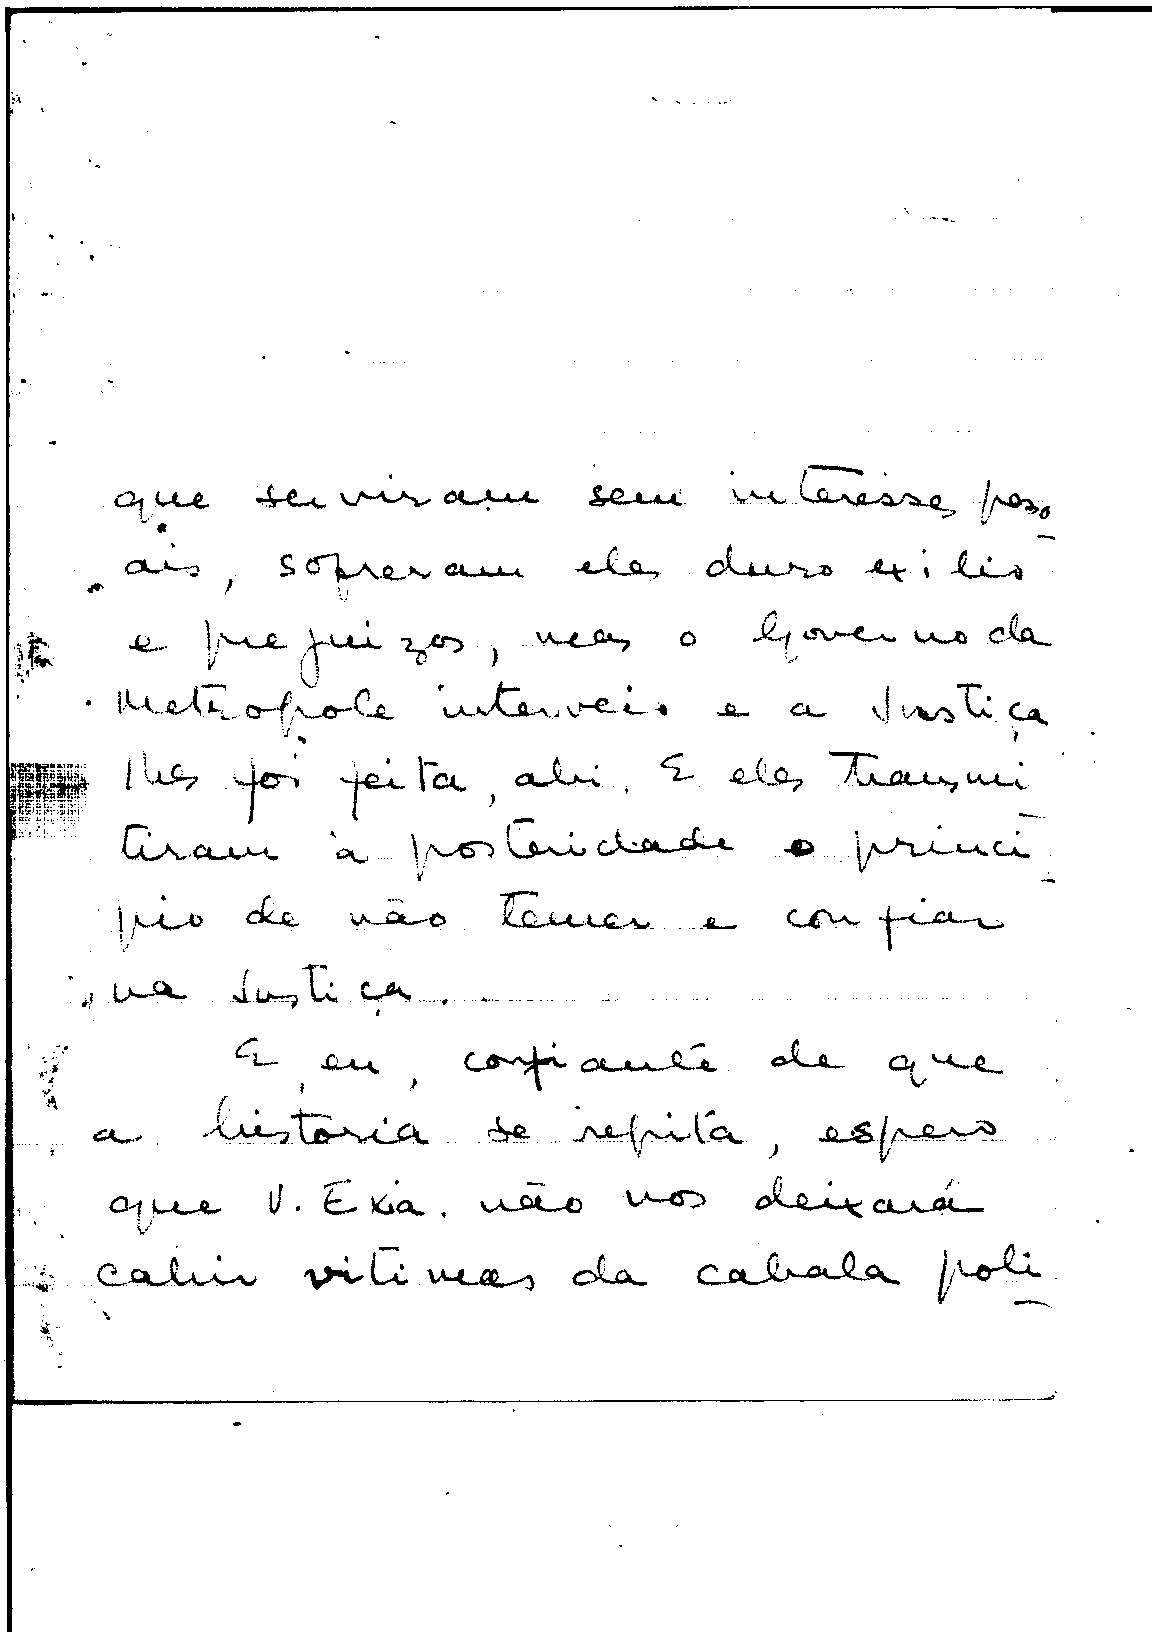 que serviram sem interesses peso
ais, sofreram eles duro exilio
e prejuizos, mas o Governo da
Metropole interveio e a Justiça
lhes foi feita, ahi. E eles transmi
tiram à posteridade o princi
pio de não temer e confiar
na Justiça.
E, eu, confiante de que
a historia se repita, espero
que V. Exia. não nos deixará
cahir vitimas da cabala poli